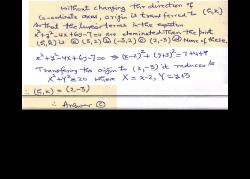 without changing the direction of
co-ordinate axes, origin is transferred to (h,k)
so that the linear terms in the equation
x²+y²-4x+6y-7=0 are eliminated. Then the point
(h,k) is (a) (3,2) (b) (-3,2) (c) (2,-3) (d) None of these.
x²+y²-4x+6y-7=0 ⇒ (x-2)²+(y+3)²=7+4+9
Transfering the origin to (2,-3) it reduces to
X²+Y²=20 where X=x-2, Y=y+3
∴ (h,k) = (2,-3)
∴ Answer (c)